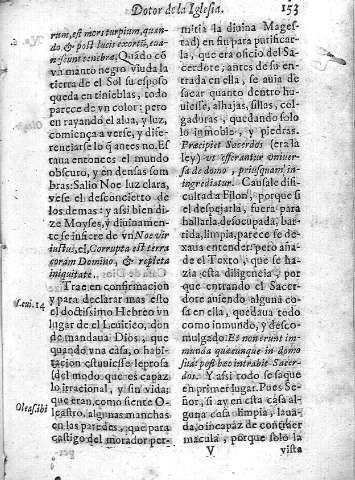 Dotor de la Iglesia. 153
rum, est mors turpium, quan-
do & post lucis exortũ, cua-
nescunt tenebræ. Quãdo cõ
vn manto negro viuda la
tierra de el Sol su esposo
queda en tinieblas, todo
parece de vn color; pero
en rayando el alua, y luz,
comiença a verse, y dife-
renciarse lo q̃ antes no. Es
taua entonces el mundo
obscuro, y en densas som
bras: Salio Noe luz clara,
vese el desconcierto de
los demas: y assi bien di-
ze Moyses, y diuinamen-
te se infiere de vn Noe vir
iustus, el, Corrupta est terra
coram Domino, & repleta
iniquitate.
Leui. 14
Trae en confirmacion
y para declarar mas esto
el doctissimo Hebreo vn
lugar de el Leuitico, don
de mandaua Dios, que
quando vna casa, o habi-
tacion estuuiesse leprosa
del modo que es capaz
lo irracional, y sin vida;
Oleas. ibi
que eran, como siente O-
leastro, algunas manchas
en las paredes, que para
castigo del morador per-
mitia la diuina Mages-
tad) en fin para purificar-
la, que era oficio del Sa-
cerdote, antes de su en-
trada en ella, se auia de
sacar quanto dentro hu-
uiesse, alhajas, sillas, col-
gaduras, quedando solo
lo inmoble, y piedras.
Præcipiet Sacerdos (era la
ley) vt efferantur vniuer
sa de domo, priusquam in-
grediatur. Causale difi-
cultad a Filon, porque si
el despejarla, fuera para
hallarla desocupada, bar-
rida, limpia, parece se de-
xaua entender pero aña-
de el Texto, que se ha-
zia esta diligencia, por
que entrando el Sacer-
dote auiendo alguna co-
sa en ella, quedaua todo
como inmundo, y desco-
mulgado. Et non erunt im-
munda quæcunque in domo
sunt post hæc intrabit Sacer-
dos. Y assi todo se saque
en primer lugar. Pues Se-
ñor, si ay en esta casa al-
guna cosa limpia, laua-
da, o incapaz de contraer
macula, porque solo la
V vista